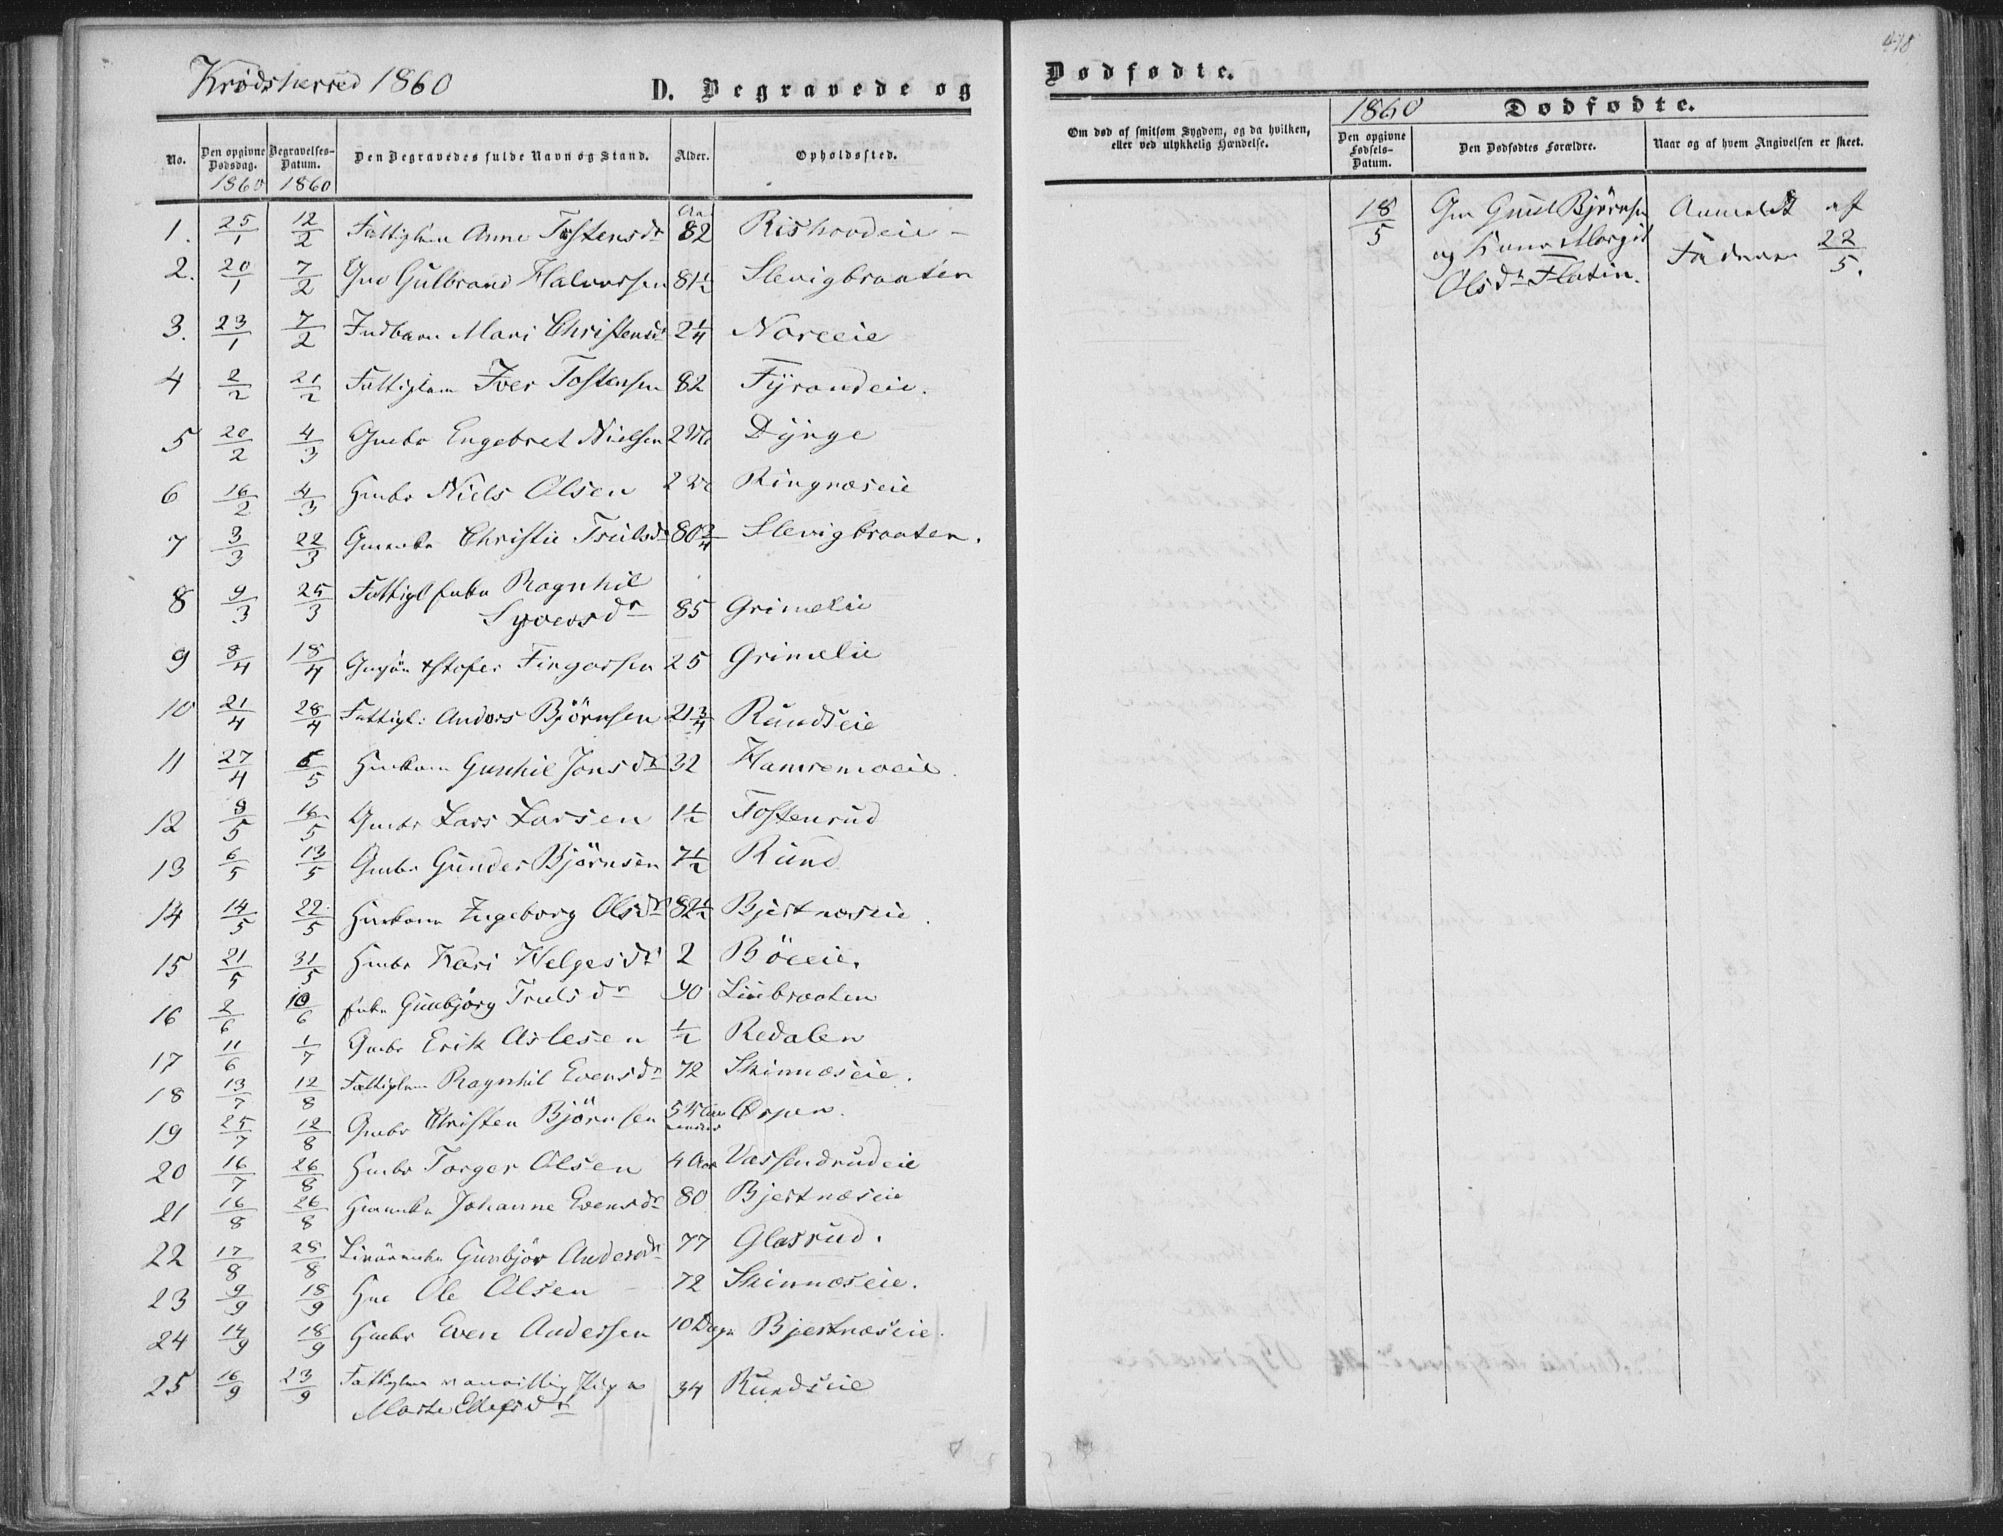 478
Krødsherred 1860
D. Begravede og
Dødfødte.
No.
Den opgivne Dødsdag.
1860
Begravelses-Datum.
1860
Den Begravedes fulde Navn og Stand.
Alder.
Opholdssted.
Om død af smitsom Sygdom, og da hvilken,
eller ved ulykkelig Hændelse.
1860 Dødfødte.
Den opgivne Fødsels-Datum.
Den Dødfødtes Forældre.
Naar og af hvem Angivelsen er skeet.
1. 25/1 12/2 Fattiglem Anne Tostensdr Aar 82 Rishovdeie
2. 20/1 7/2 Gmd Gulbrand Halvorsen 81½ Slevigbraaten
3. 23/1 7/2 Indbarn Mari Christensdr 2¼ Noreeie
4 2/2 21/2 Fattiglem Iver Tostensen 82 Fyrandeie.
5 20/2 4/3 Gmbr Engebret Nielsen 2 Dynge
6 16/2 4/3 Hmbr Niels Olsen 2 Ringnæseie
7 3/3 22/3 Gmenke Christie Trulsdr 80¾ Slevigbraaten.
8 9/3 25/3 Fattigl Enke Ragnhil
Syversdr 85 Grimelie
9 8/4 18/4 Fingarsen 25 Grimelie
10 21/4 28/4 Fattigl: Anders Bjørnsen 21¾ Rundseie
11 27/4 6/5 Hmkone Gunhil Jonsdr 32 Hamremoeie
12 8/5 16/5 Gmbr Lars Larsen 1½ Tostenrud
13 6/5 13/5 Gmbr Gunder Bjørnsen 7½ Rund
14 14/5 22/5 Hmkone Ingeborg Olsdr 82½ Bjertnæseie.
15 21/5 31/5 Hmbr Kari Helgesdr 2 Böeeie.
16 2/6 10/6 Enke Gunbjørg Trulsdr 90 Liebraaten
17 11/6 1/7 Gmbr Erik Aslesen ½ Redalen
18 13/7 12/8 Fattiglem Ragnhil Evensdr 72 Skinnæseie.
19 25/7 12/8 Gmbr Christen Bjørnsen 5 Ørpen.
20 16/7 26/8 Hmbr Torger Olsen 4 Aar Vassendrudeie
21 16/8 26/8 Hmenke Johanne Evensdr 80 Bjertnæseie
22 17/8 28/8 Gunbjør Andersdr 77 Glesrud.
23 9/9 18/9 Hmd Ole Olsen 72 Skinnæseie.
24 14/9 18/9 Hmbr Even Andersen 10 Dage Bjertnæseie.
25 16/9 23/9 Fattiglem vanvittig Pige
Marte Ellefsdr 34 Rundseie
18/5 Gm Gunl Bjørnsen
og Kone Margit
Olsdr Flatin.
Anmeldt af
Faderen 22/5.